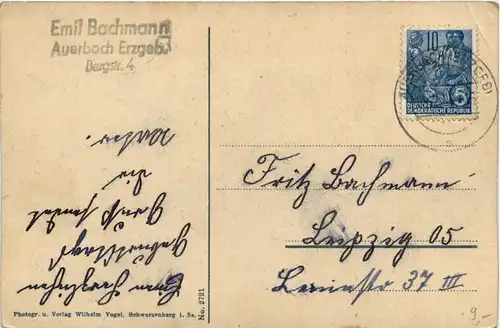 Emil Bachmann
Auerbach Erzgeb.
Bergstr. 4
10
5
DEUTSCHE
DEMOKRATISCHE REPUBLIK
Fritz Bachmann
Leipzig O5
Leninstr 37 III
Zum herzlichen
Geburtstag
Gruß sendet
die
Mutter.
Photogr. u. Verlag Wilhelm Vogel, Schwarzenberg i. Sa.
No. 2721
9,-